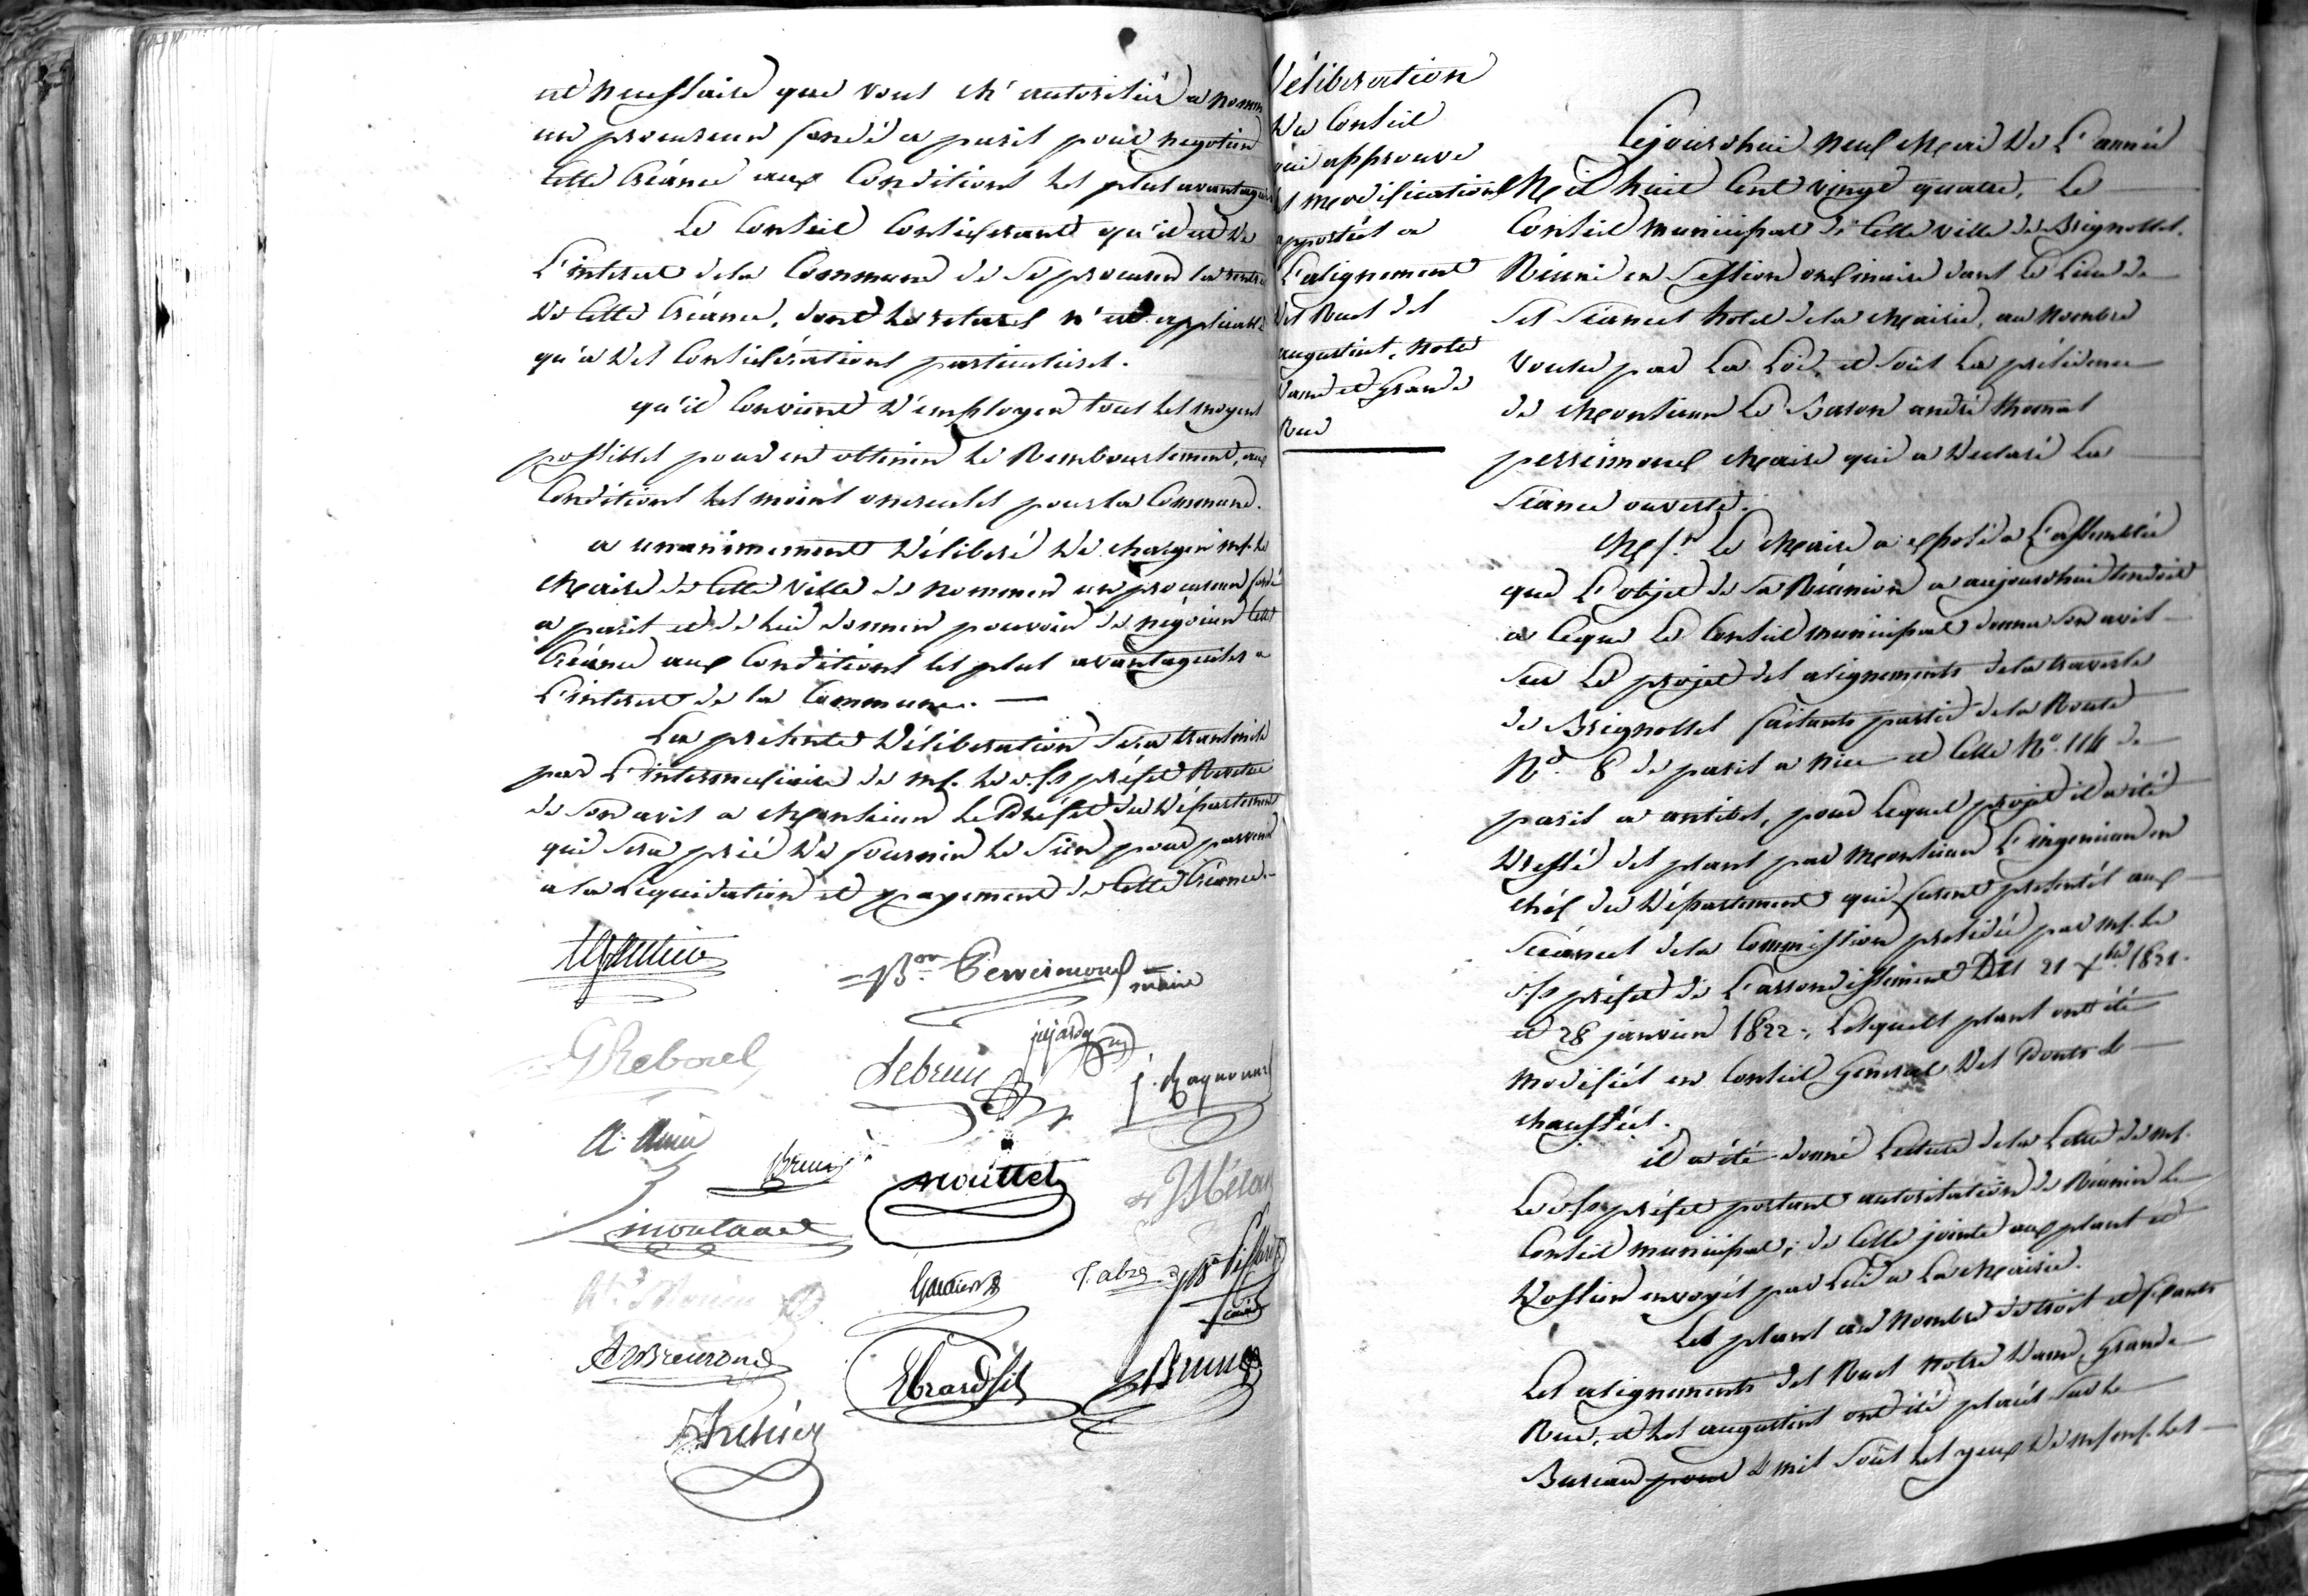 est necessaire que vous m'autorisiés a nommer
un procureur fondé a paris pour negotier
cette Créance aux Conditions les plus avantageuses
Le Conseil Considerant qu'il est de
L'interet de la Commune de se procurer la rentrée
de cette Créance, dont le retard n'est applicable
qu'a des Considérations particulieres.
qu'il Convient d'employer tous les moyens
possibles pour en obtenir le Remboursement, aux
Conditions les moins onereuses pour la Commune.
a unanimement délibéré de charger mr. le
Maire de cette ville de nommer un procureur fondé
a paris et de lui donner pouvoir de négocier cette
Créance aux Conditions les plus avantageuses a
L'interet de la Commune.
La presente délibération sera transmise
par L'intermediaire de mr. le s/s préfet Revetue
de son avis a Monsieur le Préfet du Département
qui sera prié de fournir le sien pour parvenir
a la liquidation et payement de cette Créance.
Bon Perrimond maire
G Reboul
Lebrun
jujardy
j. Raynouard
A. Amic
Brun
nouttet
moutaud
Gautier
Fabre
A Bremond
Ebrard fils
Brun
Délibération
du Conseil
qui approuve
les modifications
apportées a
L'alignement
des Rues des
augustins, notre
dame et Grande
Rue
Cejourdhui neuf Mai de L'année
Mil huit Cent vingt quatre, Le
Conseil municipal de cette ville de Brignolles.
Réuni en session ordinaire dans le lieu de
ses séances hotel de la Mairie, au nombre
voulu par la Loi, et sous la présidence
de Monsieur Le Baron andré thomas
perrimond Maire qui a déclaré la
séance ouverte.
Mr. Le Maire a exposé a L'assemblée
que L'objet de sa Réunion a aujourdhui tendoit
a ceque le Conseil municipal donna son avis
sur le projet des alignements de la traverse
de Brignolles faisants partie de la Route
No. 8 de paris a nice et celle No. 114 de
paris a antibes, pour lequel projet il a été
dressé des plans par Monsieur L'ingenieur en
chéf du Département qui furent presentés aux
séances de la Commission presidée par mr. le
s/s préfet de L'arrondissement Des 21 Xbre 1821.
et 28 janvier 1822; Lesquels plans ont été
modifiés en Conseil General des Ponts &
chaussées.
il a été donné Lecture de la Lettre de mr.
Le s/s préfet portant autorisation de Réunir le
Conseil municipal; de celle jointe aux plans et
Dossier envoyés par Lui a La Mairie.
Les plans au nombre de trois et fixants
Les alignements des Rues notre dame, Grande
Rue, et des augustins ont été placés sur le
Bureau pour & mis sous les yeux de mrs. les